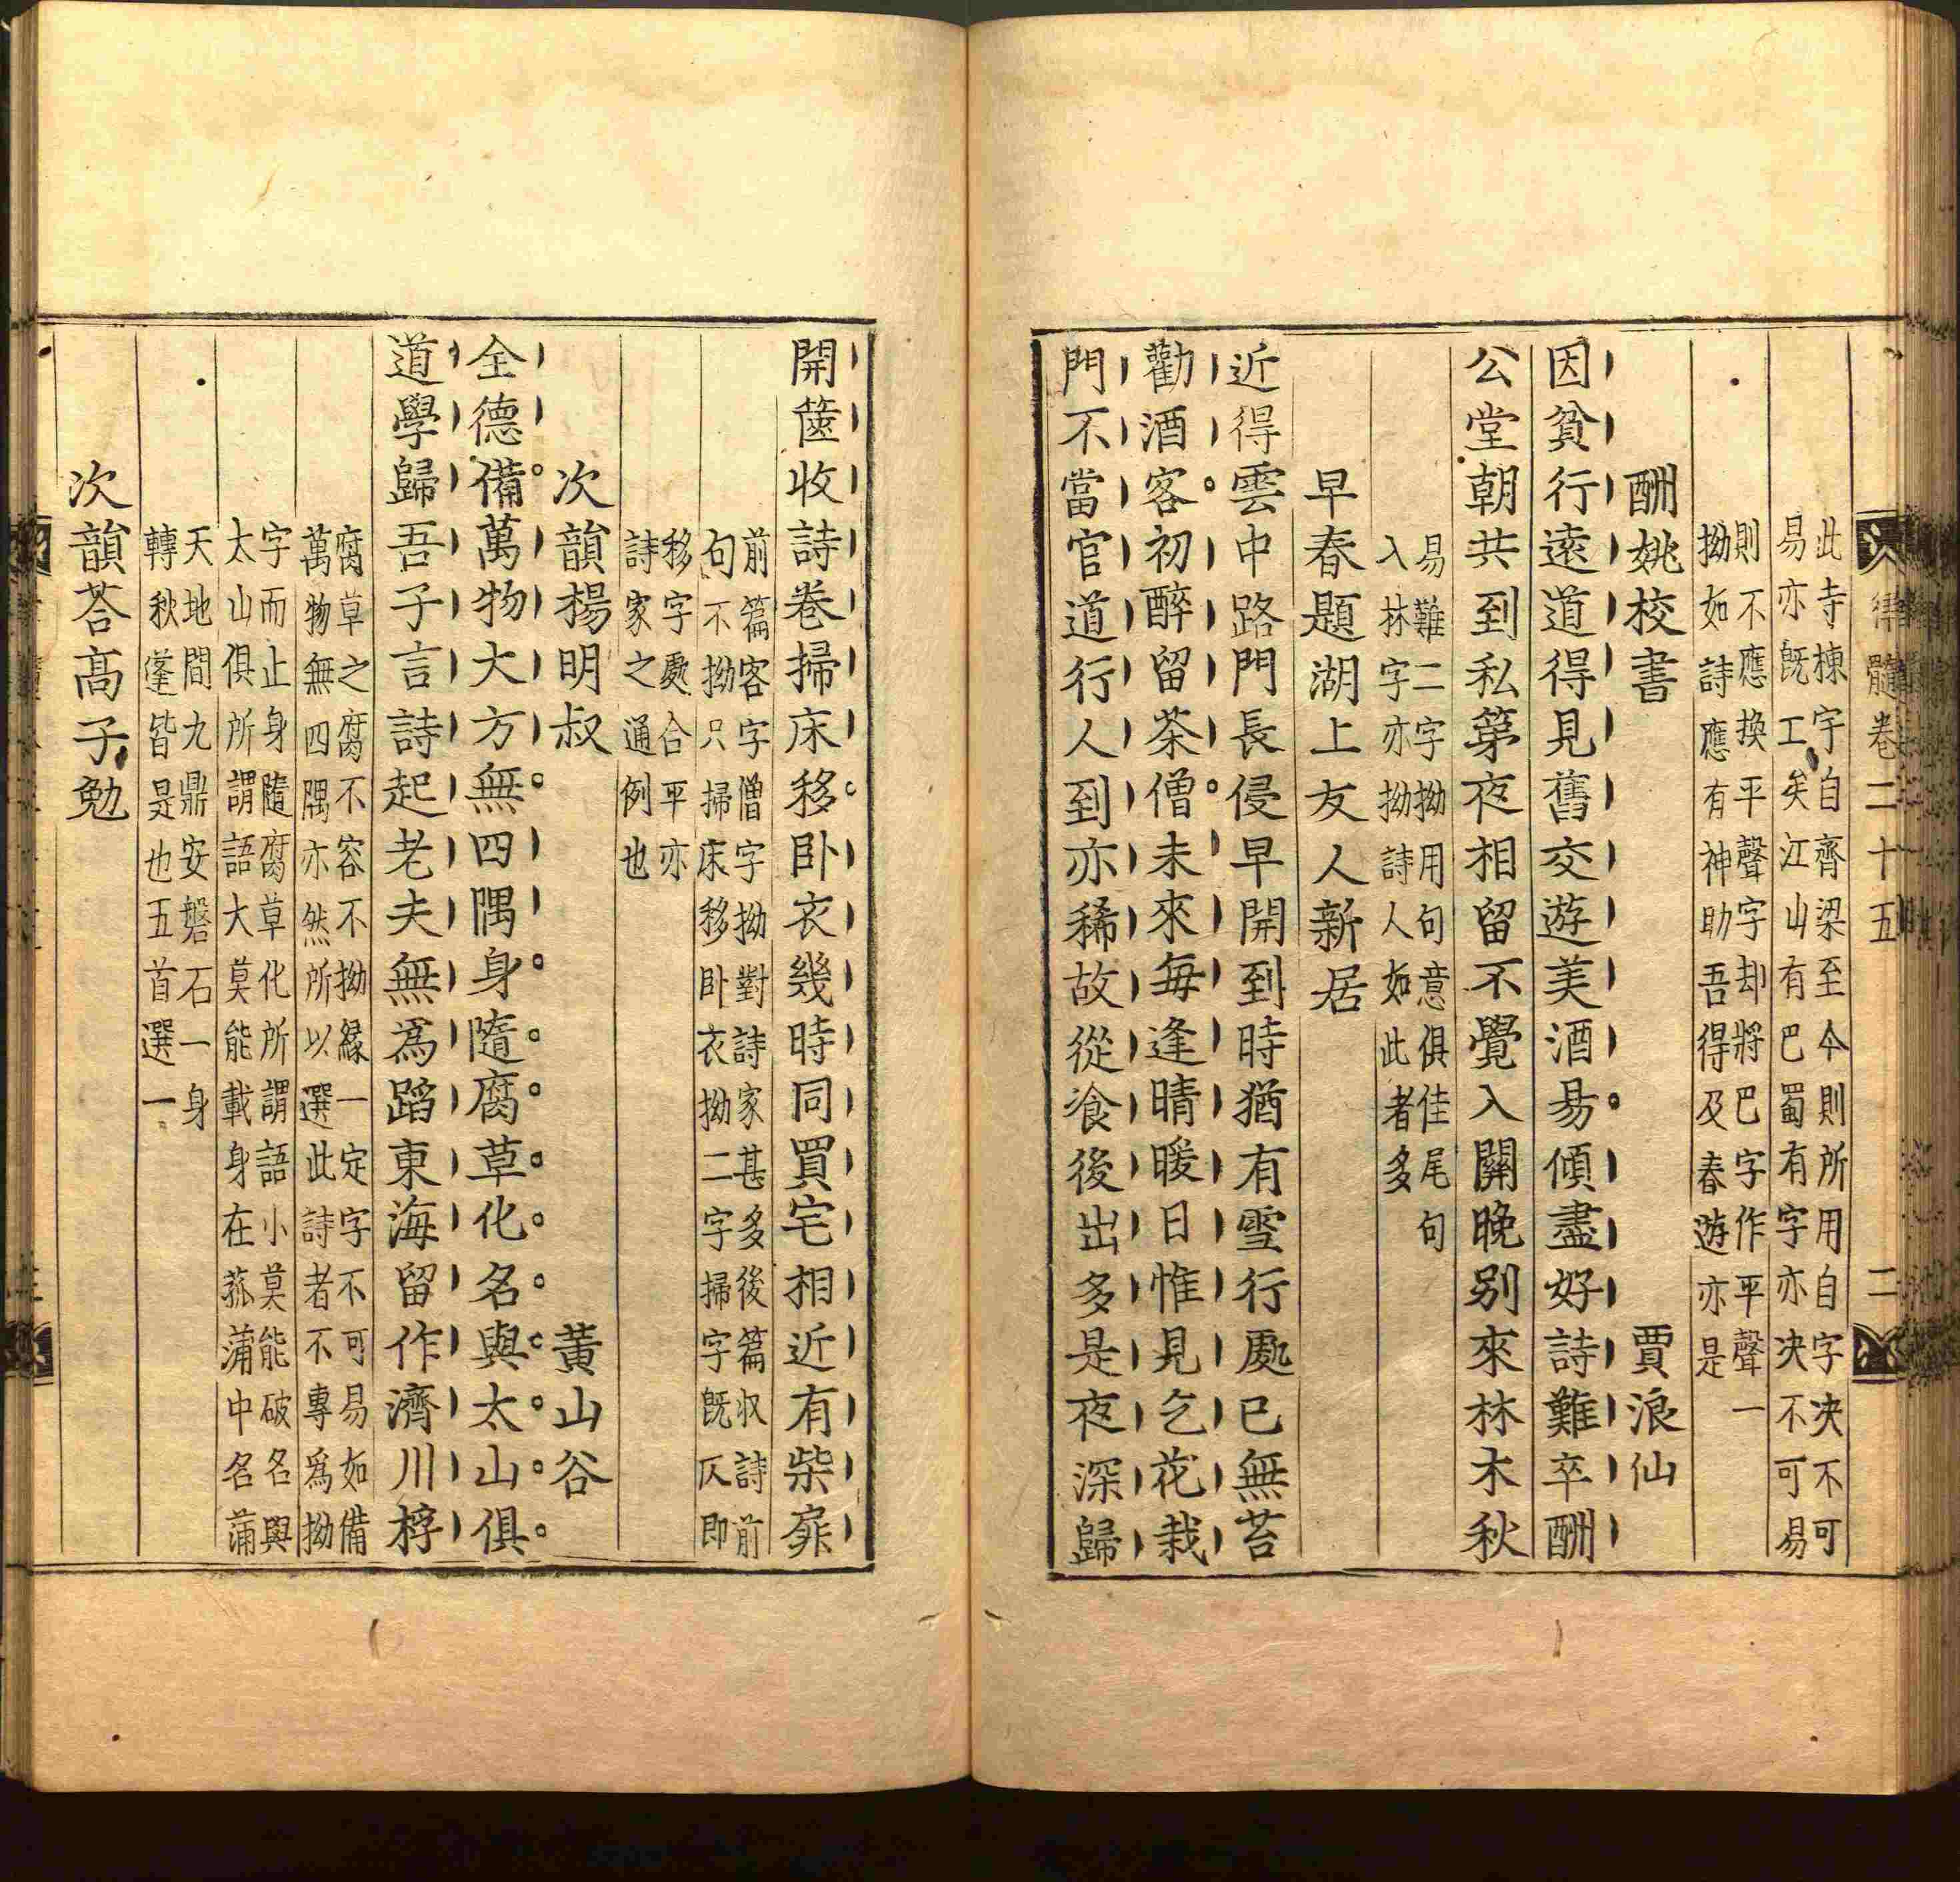 律髓卷二十五
二
此寺棟宇自齊梁至今則所用自字决不可
易亦旣工矣江山有巴蜀有字亦决不可易
則不應換平聲字却將巴字作平聲一
拗如詩應有神助吾得及春遊亦是
酬姚校書 賈浪仙
因貧行遠道得見舊交遊美酒易傾盡好詩難卒酬
公堂朝共到私第夜相留不覺入關晚別來林木秋
易難二字拗用句意俱佳尾句
入林字亦拗詩人如此者多
早春題湖上友人新居
近得雲中路門長侵早開到時猶有雪行處已無苔
勸酒客初醉留茶僧未來每逢晴暖日惟見乞花栽
門不當官道行人到亦稀故從飡後出多是夜深歸
開篋收詩卷掃床移卧衣幾時同買宅相近有柴扉
前篇客字僧字拗對詩家甚多後篇収詩前
句不拗只掃床移卧衣拗二字掃字旣仄即
移字處合平亦
詩家之通例也
次韻楊明叔 黃山谷
全德備萬物大方無四隅身隨腐草化名與太山俱
道學歸吾子言詩起老夫無爲蹈東海留作濟川桴
腐草之腐不容不拗緣一定字不可易如備
萬物無四隅亦然所以選此詩者不專爲拗
字而止身隨腐草化所謂語小莫能破名與
太山俱所謂語大莫能載身在菰蒲中名蒲
天地間九鼎安磐石一身
轉秋蓬皆是也五首選一
次韻荅高子勉